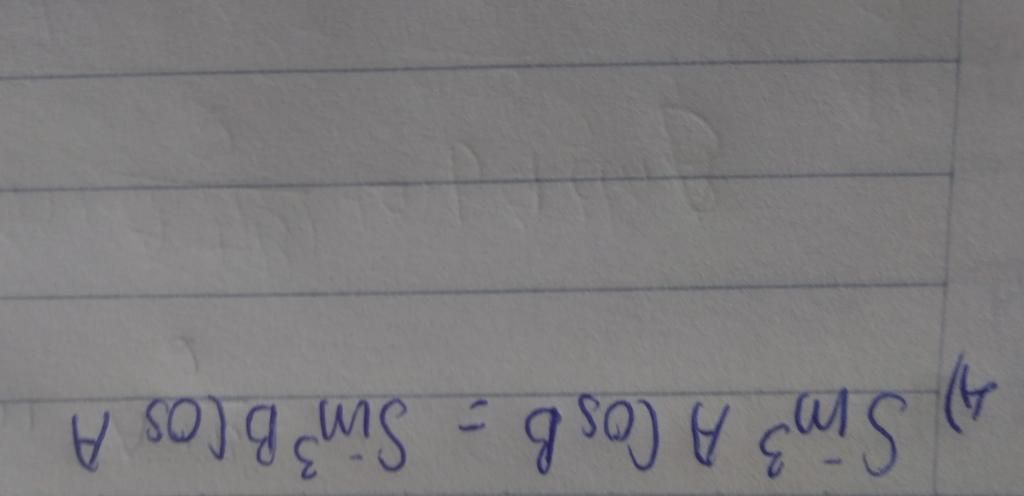 4) Sin³ A Cos B = Sin³ B Cos A